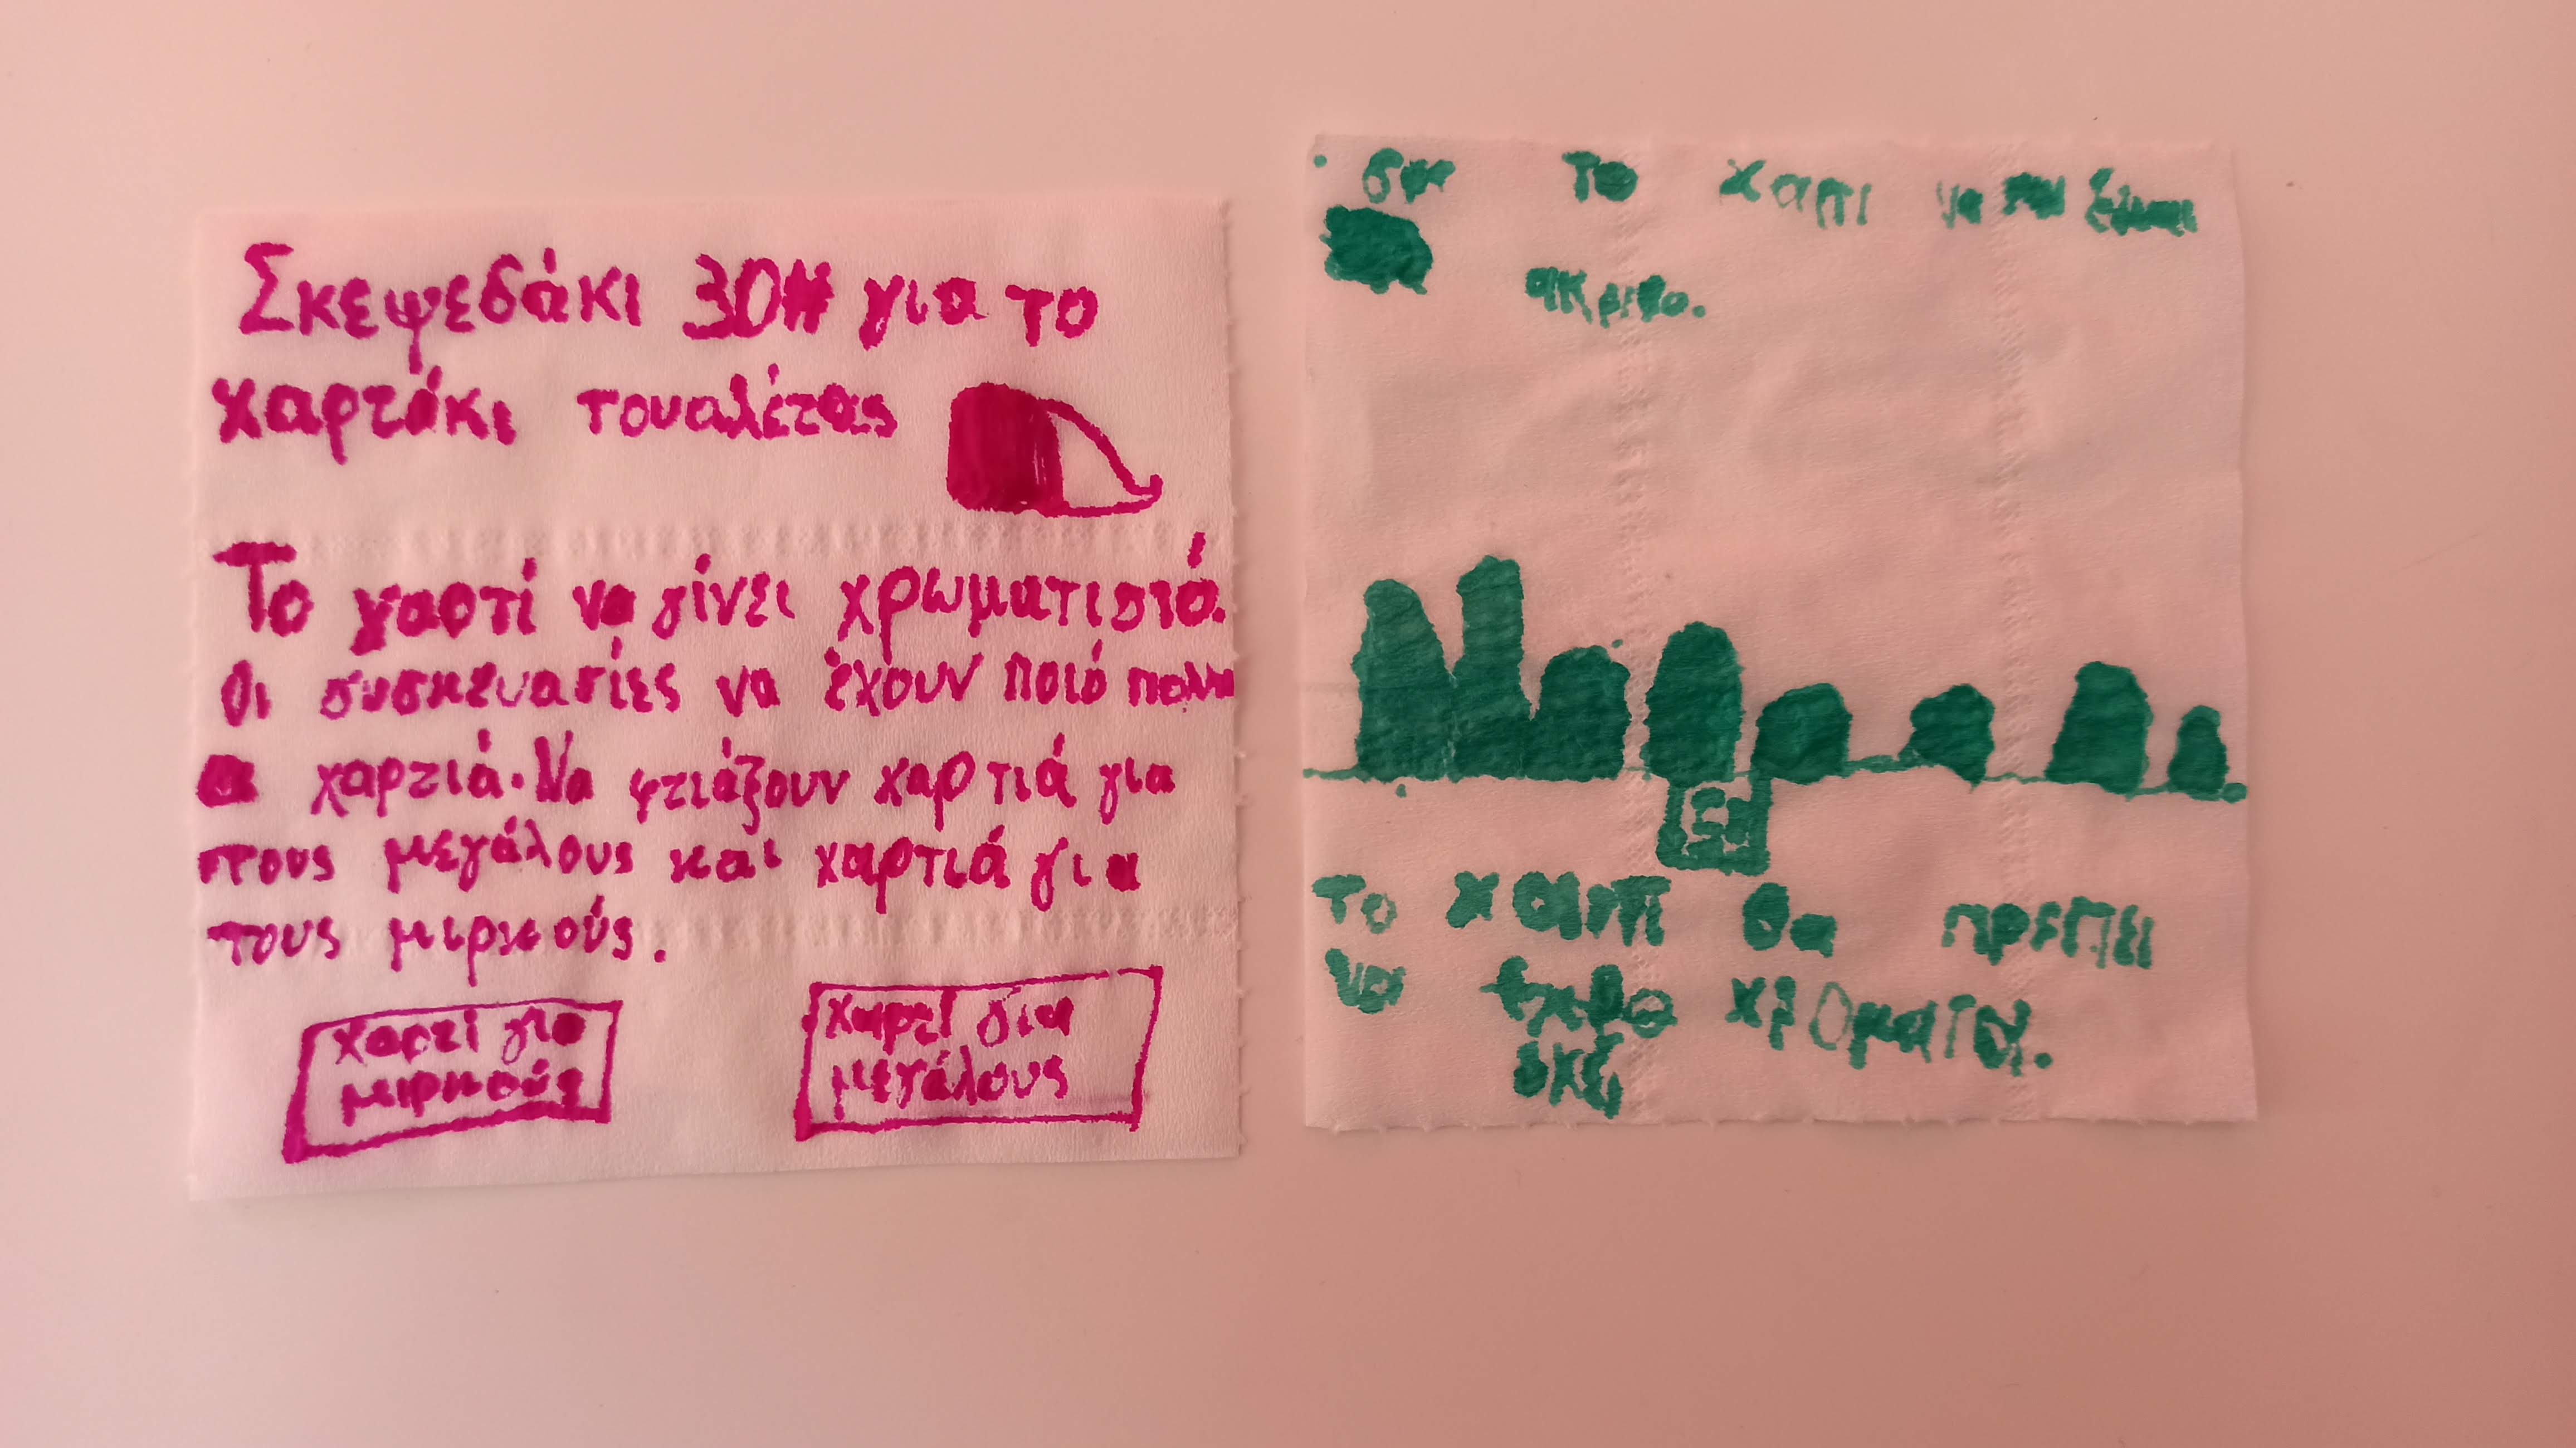 Σκεψεδάκι 30# για το
χαρτάκι τουαλέτας
Το χαρτί να γίνει χρωματιστό.
Οι συσκευασίες να έχουν ποιό πολλ
α χαρτιά. Να φτιάξουν χαρτιά για
τους μεγάλους και χαρτιά για
τους μιρκούς.
χαρτί για
μιρκούς
χαρτί για
μεγάλους
το χαρτι να μην ειναι
ακριβο.
το χαρτι θα πρεπει
να χροματα.
οχι